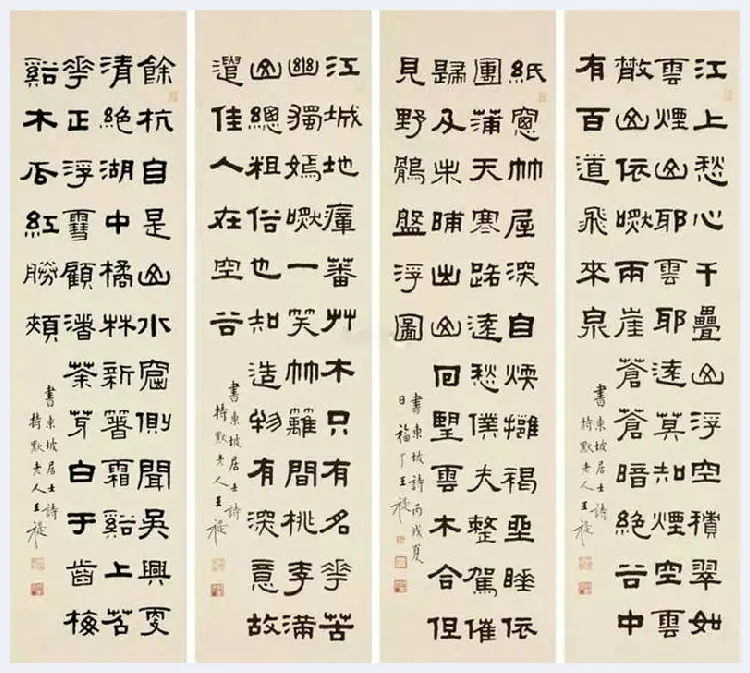 江上愁心千疊山浮空積翠如
雲煙山耶雲耶遠莫知煙空雲
散山依嘫兩崖蒼蒼暗絕谷中
有百道飛來泉
書東坡居士詩
持默老人王禔
紙窗竹屋深自煖擁褐坐睡依
團蒲天寒路遠愁僕夫整駕催
歸及未晡出山回望雲木合但
見野鶻盤浮圖
書東坡詩丙戌夏
日福厂王禔
江城地瘴蕃艸木只有名華苦
幽獨嫣嘫一笑竹籬間桃李滿
山總粗俗也知造物有深意故
遣佳人在空谷
書東坡居士詩
持默老人王禔
餘杭自是山水窟側聞吳興更
清絕湖中橘林新著霜谿上苕
華正浮雪顧渚茶芽白于齒梅
谿木瓜紅勝頰
書東坡居士詩
持默老人王禔